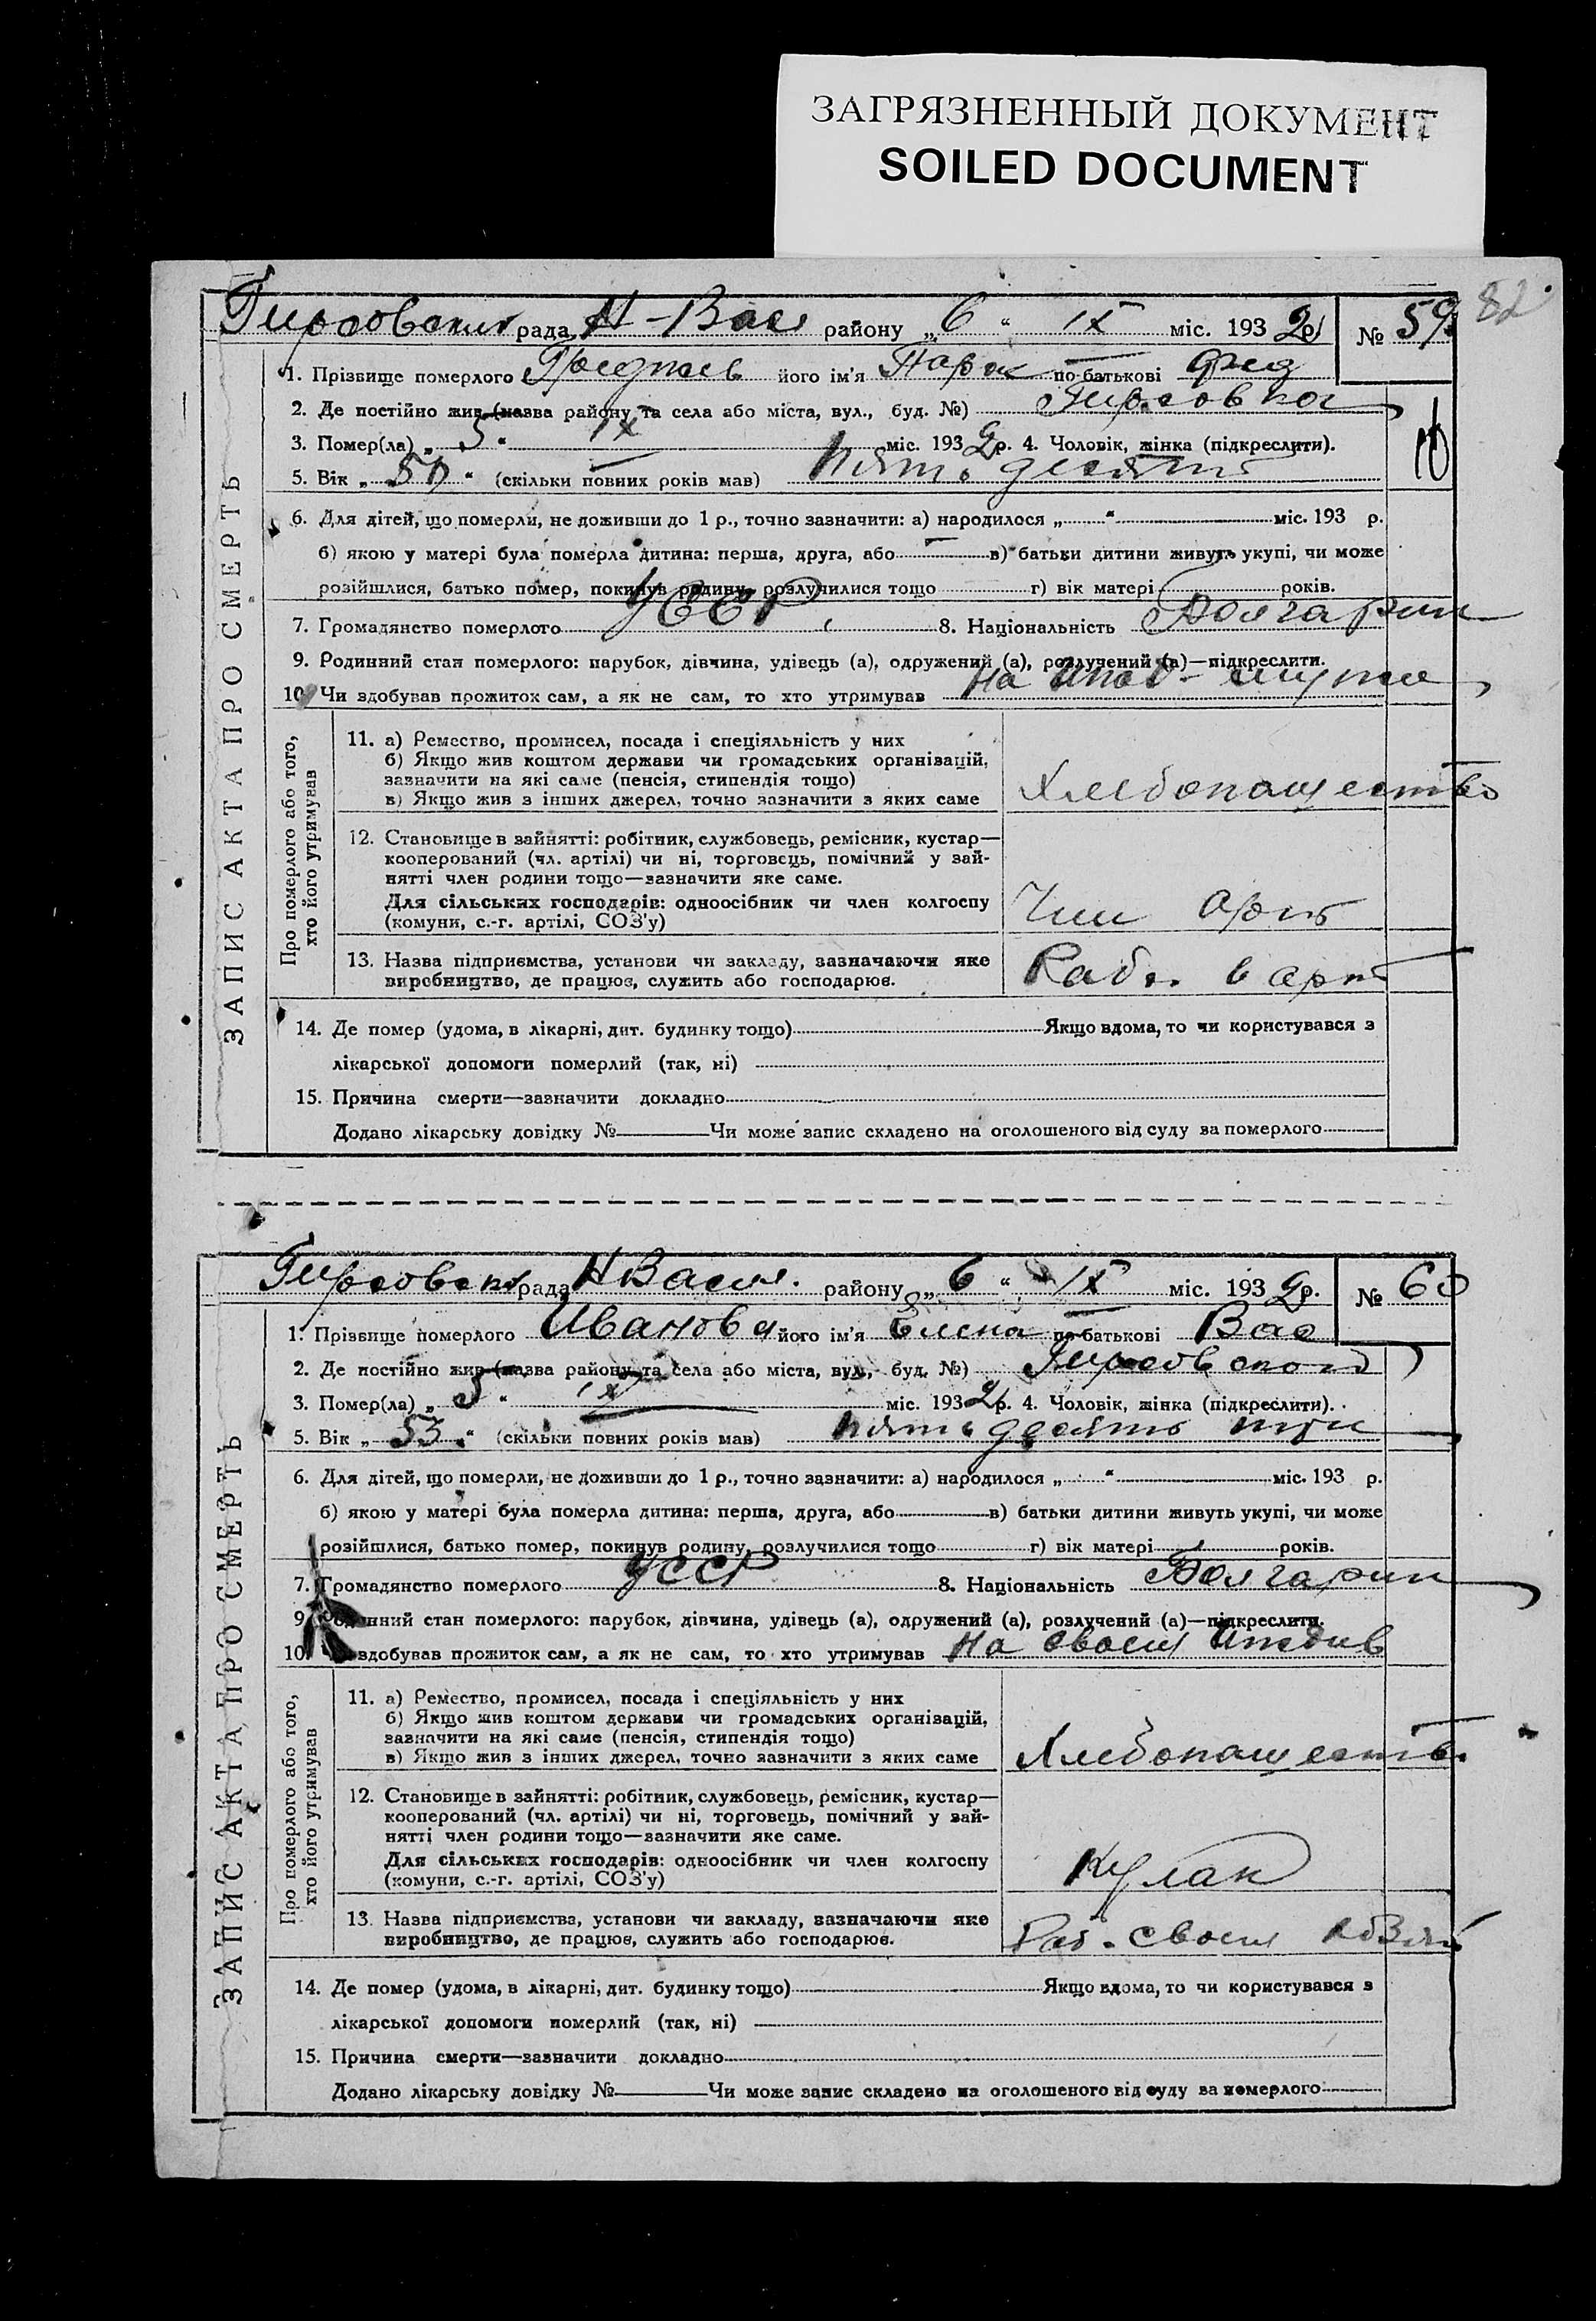 ЗАГРЯЗНЕННЫЙ ДОКУМЕНТ
SOILED DOCUMENT
82
рада Н-Вас району „ 6 “ IX міс. 193 2 р. № 59
1. Прізвище померлого його ім'я по-батькові
2. Де постійно жив (назва району та села або міста, вул., буд. №) Гирсовка
3. Помер(ла) „ 5 “ IX міс. 193 2 р. 4. Чоловік, жінка (підкреслити).
5. Вік „ 50 “ (скільки повних років мав) пятьдесять
6. Для дітей, що померли, не доживши до 1 р., точно зазначити: а) народилося „ “ міс. 193 р.
б) якою у матері була померла дитина: перша, друга, або в) батьки дитини живуть укупі, чи може
розійшлися, батько помер, покинув родину, розлучилися тощо г) вік матері років.
7. Громадянство померлого УССР 8. Національність Болгарин
9. Родинний стан померлого: парубок, дівчина, удівець (а), одружений (а), розлучений (а)—підкреслити.
10. Чи здобував прожиток сам, а як не сам, то хто утримував на
ЗАПИС АКТА ПРО СМЕРТЬ
Про померлого або того,
хто його утримував
11. а) Ремество, промисел, посада і спеціяльність у них
б) Якщо жив коштом держави чи громадських організацій,
зазначити на які саме (пенсія, стипендія тощо)
в) Якщо жив з інших джерел, точно зазначити з яких саме Хлебопашество
12. Становище в зайнятті: робітник, службовець, ремісник, кустар—
кооперований (чл. артілі) чи ні, торговець, помічний у зай-
нятті член родини тощо—зазначити яке саме.
Для сільських господарів: одноосібник чи член колгоспу
(комуни, с.-г. артілі, СОЗ'у)
13. Назва підприємства, установи чи закладу, зазначаючи яке
виробництво, де працює, служить або господарює. Раб. в арт
14. Де помер (удома, в лікарні, дит. будинку тощо) Якщо вдома, то чи користувався з
лікарської допомоги померлий (так, ні)
15. Причина смерти—зазначити докладно
Додано лікарську довідку № Чи може запис складено на оголошеного від суду за померлого
рада Н Васил. району „ 6 “ IX міс. 193 2 р. № 60
1. Прізвище померлого Иванова його ім'я Елена по-батькові Вас
2. Де постійно жив (назва району та села або міста, вул., буд. №)
3. Помер(ла) „ 5 “ IX міс. 193 2 р. 4. Чоловік, жінка (підкреслити).
5. Вік „ 53 “ (скільки повних років мав) пятьдесять три
6. Для дітей, що померли, не доживши до 1 р., точно зазначити: а) народилося „ “ міс. 193 р.
б) якою у матері була померла дитина: перша, друга, або в) батьки дитини живуть укупі, чи може
розійшлися, батько помер, покинув родину, розлучилися тощо г) вік матері років.
7. Громадянство померлого УССР 8. Національність Болгарин
9. Родинний стан померлого: парубок, дівчина, удівець (а), одружений (а), розлучений (а)—підкреслити.
10. Чи здобував прожиток сам, а як не сам, то хто утримував на своем иждив
ЗАПИС АКТА ПРО СМЕРТЬ
Про померлого або того,
хто його утримував
11. а) Ремество, промисел, посада і спеціяльність у них
б) Якщо жив коштом держави чи громадських організацій,
зазначити на які саме (пенсія, стипендія тощо)
в) Якщо жив з інших джерел, точно зазначити з яких саме Хлебопашеств.
12. Становище в зайнятті: робітник, службовець, ремісник, кустар—
кооперований (чл. артілі) чи ні, торговець, помічний у зай-
нятті член родини тощо—зазначити яке саме.
Для сільських господарів: одноосібник чи член колгоспу
(комуни, с.-г. артілі, СОЗ'у) Кулак
13. Назва підприємства, установи чи закладу, зазначаючи яке
виробництво, де працює, служить або господарює. Раб. своем
14. Де помер (удома, в лікарні, дит. будинку тощо) Якщо вдома, то чи користувався з
лікарської допомоги померлий (так, ні)
15. Причина смерти—зазначити докладно
Додано лікарську довідку № Чи може запис складено на оголошеного від суду за померлого